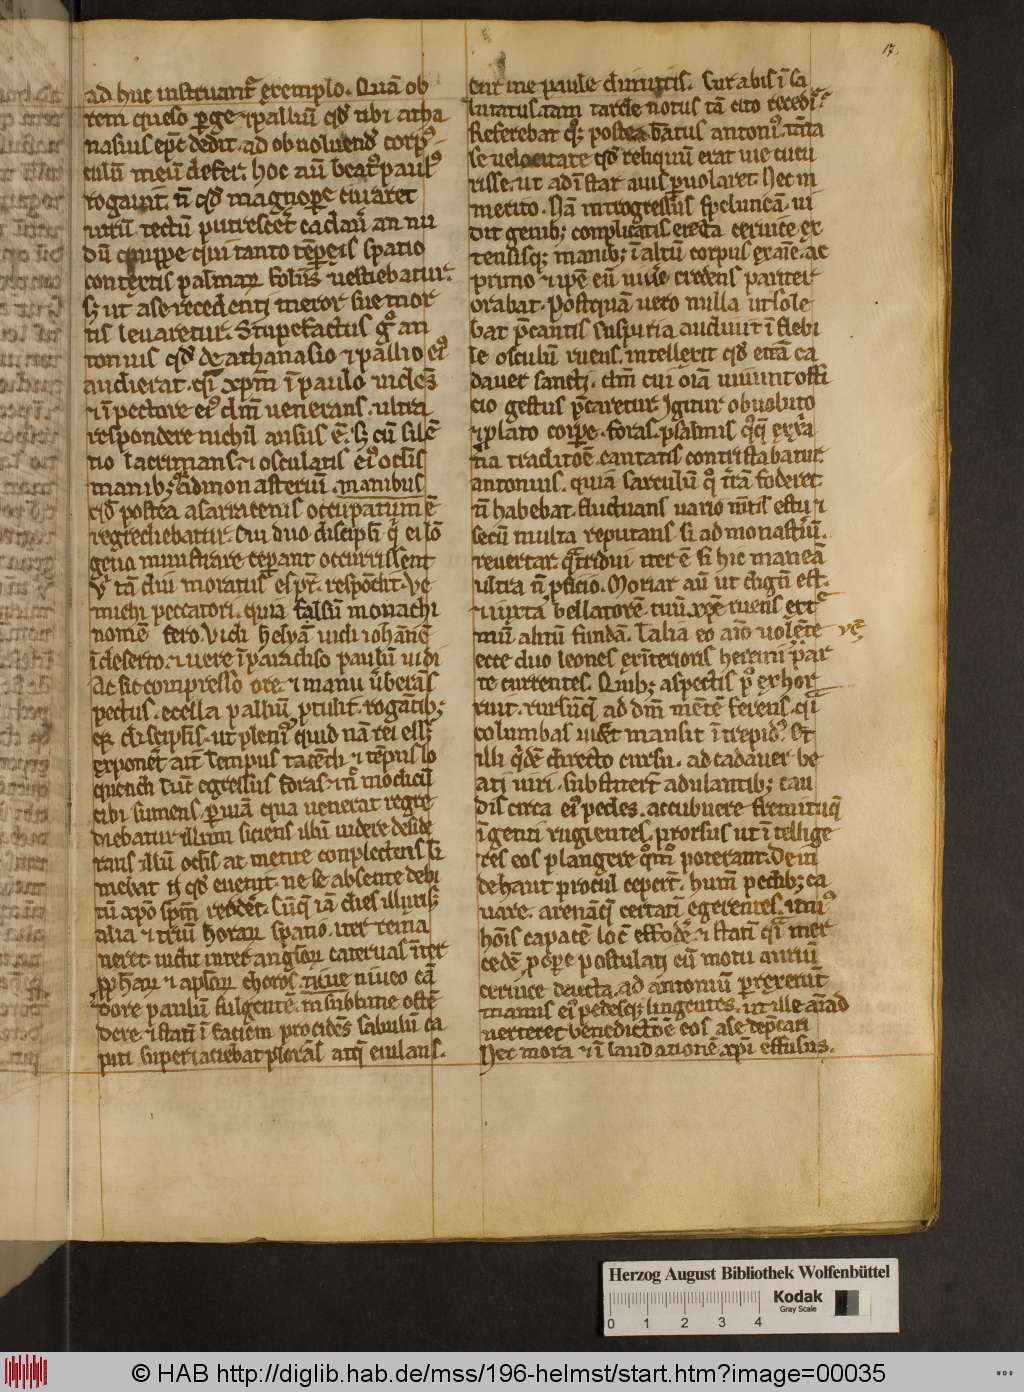 17.
ad huc instruant᷑ exemplo. Quā ob
rem queso ꝑge ⁊ palliū qd̕ tibi atha
nasius epc̄ dedit. ad obuoluend̄ corpꝰ
culū meū defer. hoc aū beatꝰ paulꝰ
rogauit. n̄ qd̕ magnope curaret
utrū tectū putresceret cadauer an nu
dū. quippe qui tanto tēpeis spatio
contextis palmaꝝ foliis uestiebatur.
sꝫ ut a se recedenti meror sue mor
tis leuaretur. Stupefactus gͦ an
tonius qd̕ de athanasio ⁊ pallio eiꝰ
audierat. qͣsi xp̄m ī paulo uidēs
⁊ ī pectore eiꝰ dm̄ uenerans. ultra
respondere nichil ausus ē. sꝫ cū silē
tio lacrimans. ⁊ osculatis eiꝰ oclīs
manibꝫ. ad monasteriū. manibus
qd̕ postea a sarracenis occupatum ē
regrediebatur. Cui duo discipli q̄ ei lō
geuo ministrare ceperant occurrissent
Vͥ tā diu moratus es pr̄. respōdit. Ve
michi peccatori. quia falsū monachi
nomē fero. Vidi helyā uidi iohānē
ī deserto. ⁊ uere ī paradiso paulū uidi
Ac sic compresso ore. ⁊ manu ūberās
pectus. e cella palliū ꝓtulit. rogātibꝫ
qꝫ discipl̄is. ut pleniꝰ quid nā rei ess
exponeret ait. Tempus tacēdi ⁊ tēpus lo
quendi. Tūc egressus foras. ⁊ n̄ modicū
cibi sumens. ꝑ uiā qua uenerat regre
diebatur illum siciens illū uidere deside
rans illū oclīs ac mente conplectens ti
mebat n̄ qd̕ euenit. ne se absente debi
tū xpō spm̄ redderet. Cūqꝫ iā dies illuxiss
alia ⁊ triū horaꝝ spatio. iter rema
neret. uidit inter anglorꝝ cateruas īter
ꝓphetaꝝ ⁊ aplorꝝ choros. niue niueo cā
dore paulū fulgentē. in sublime ascē
dere. ⁊ statī ī faciem procidēs sabulū ca
piti superiaciebat plorās atqꝫ eiulans.
cur me paule dimittis. Cur abis ī sa
lutatus. tam tarde notus tā cito recedi.
Referebat qꝫ postea b̄atus antoniꝰ. tāta
se uelocitate qd̕ reliquū erat uie cucu
risse. ut ad īstar auis ꝑuolaret. Nec in
merito. Nā introgressus speluncā. ui
dit genibꝫ complicatis erecta ceruice ex
tensisqꝫ manibꝫ. ī altū corpus exāīe. ac
primo ⁊ ipē eū uiuē credens pariter
orabat. Postquā uero nulla ut sole
bat p̄cantis suspiria audiuit ī flebi
le osculū ruens. intellexit qd̕ etiā ca
dauer sancti. dm̄ cui oīa uiuunt offi
cio gestus p̄caretur. Igitur obuoluto
⁊ plato corpe. foras. psalmis qͦqꝫ ex xͥana
tradicōē. cantatis contristabatur
antonius. quia sarculū qͦ t̄rā foderet
n̄ habebat. fluctuans uario mētis estu ⁊
secū multa reputans si ad monastīū.
reuertar. qͣtridui iter ē si hic maneā
ultra n̄ ꝓficio. Moriar aū ut dignū est.
⁊ iuxta bellatorē tuū. xp̄e ruens ext
mū alitū fundā. Talia eo aīo voluēte
ecce duo leones ex īterioris heremi par
te currentes. Quibꝫ aspectis pͥ exhor
ruit. rursūqꝫ ad dm̄ mētē ferens. qͣsi
columbas uidet mansit ītrepidꝰ. Et
illi qͥdē directo cursu. ad cadauer be
ati uiri. substiterūt adulantibꝫ cau
dis circa eiꝰ pedes. accubuere fremituqꝫ
īgenti rugientes. prorsus ut ītellige
res eos plangere qͦmͦ poterant. Dein
de haut procul ceperūt. humū pedibꝫ ca
uare. arenāqꝫ certatī egerentes. uniꝰ
hōīs capacē locū effoderūt. ⁊ statī qͣsi mer
cedē ꝓ ope postulaturi cū motu auriū
ceruice deiecta. ad antoniū perrexerūt
manus eiꝰ pedesqꝫ lingentes. ut ille aīad
uerteret benedictōē eos a se dep̄cari
Nec mora ⁊ ī laudationē xp̄i effusus.
Herzog August Bibliothek Wolfenbüttel
Kodak
Gray Scale
0 1 2 3 4
© HAB http://diglib.hab.de/mss/196-helmst/start.htm?image=00035